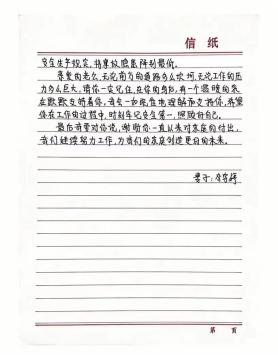 信纸
安全生产规定，将事故隐患降到最低。
尊爱的老公，无论前方的道路多么坎坷，无论工作的压
力多么巨大，请你一定记住，在你的身后，有一个温暖的家
在默默支持着你，我会一如既往地理解和支持你，希望
你在工作的过程中，时刻牢记安全第一，照顾好自己。
最后我要对你说，谢谢你一直以来对家庭的付出，
我们继续努力工作，为我们的家庭创造更好的未来。
妻子：
第 页